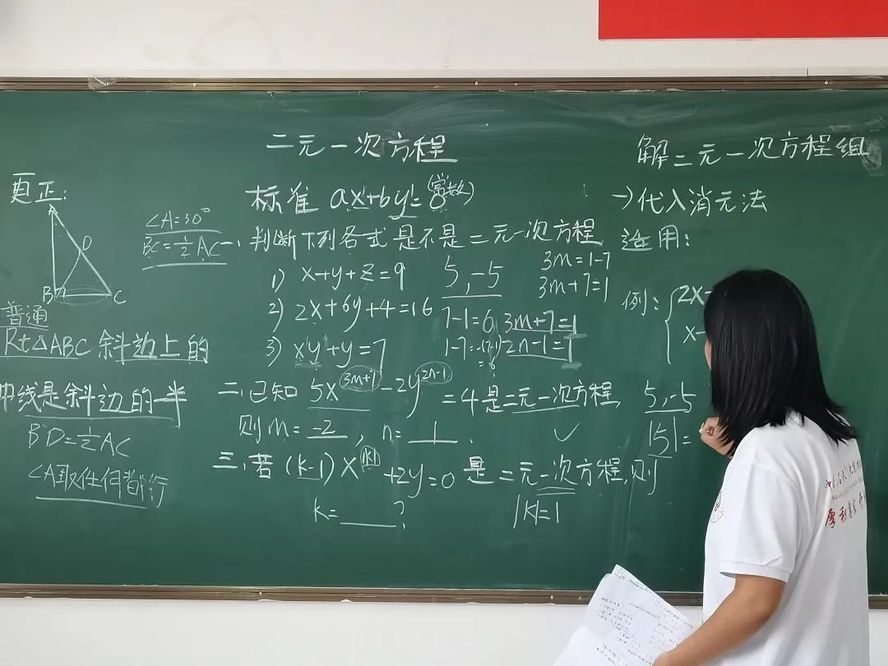 更正:
∠A=30°
BC=½AC
D
B
C
普通
Rt△ABC 斜边上的
中线是斜边的一半
BD=½AC
∠A取任何都行
二元一次方程
标准 ax+by=8(常数)
一、判断下列各式是不是二元一次方程
1) x+y+z=9
2) 2x+6y+4=16
3) xy+y=7
5,-5
7-1=6
3m=1-7
3m+7=1
3m+7=1
2n-1=1
二、已知 5x^{3m+7}-2y^{2n-1}=4是二元一次方程,
则m=-2, n=1.
三、若(k-1)x^{|k|}+2y=0是二元一次方程,则
k=____?
|k|=1
解二元一次方程组
→代入消元法
适用:
例:
2x-
x-
5,-5
|5|=